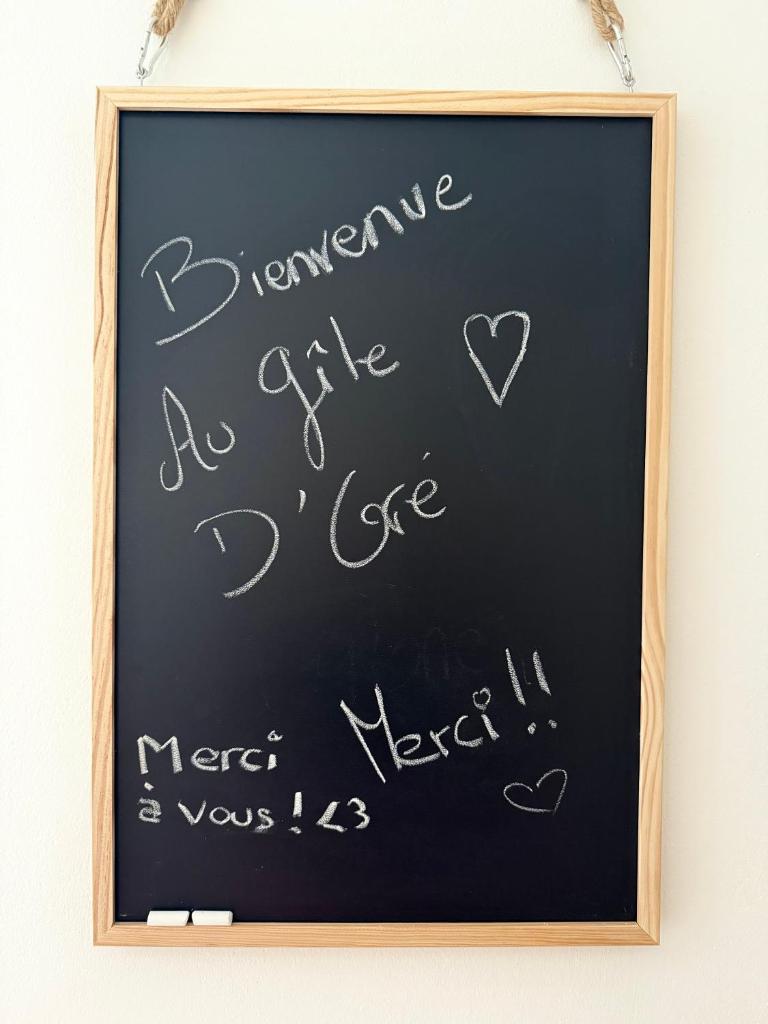 Bienvenue
Au gîte
D'Gré
Merci !!
Merci
à vous ! <3